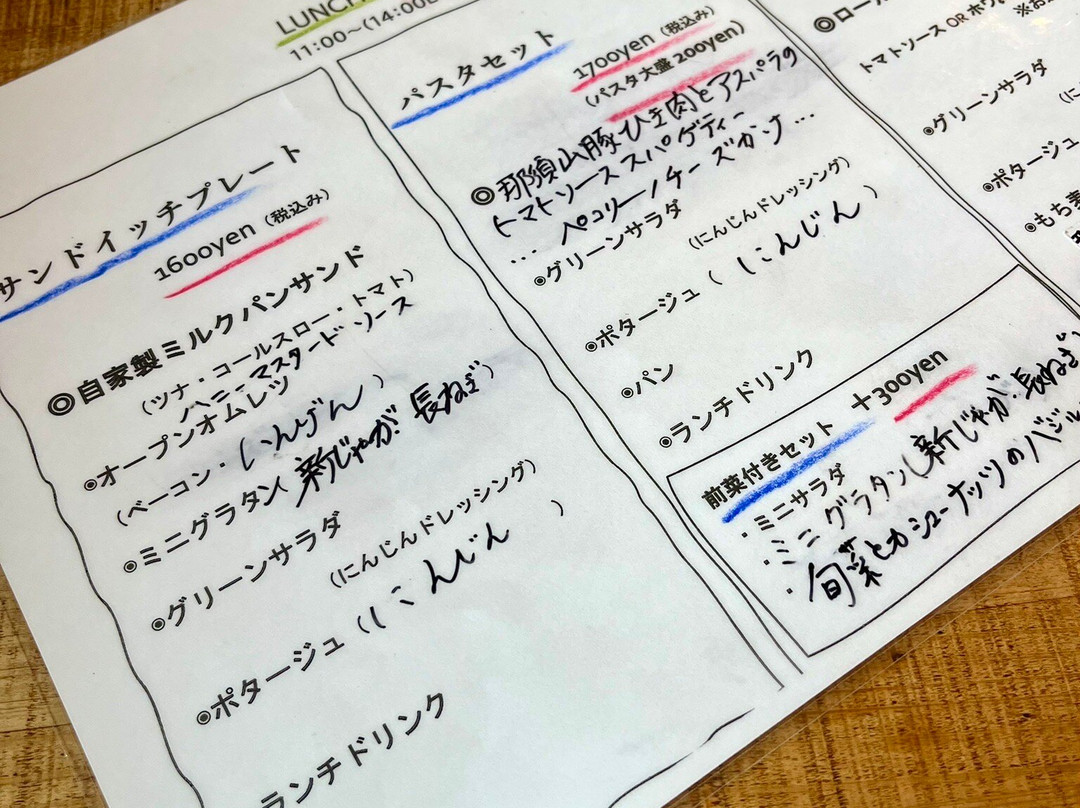 LUNCH
11:00〜(14:00
サンドイッチプレート
1600yen (税込み)
◎自家製ミルクパンサンド
(ツナ・コールスロー・トマト)
ハニーマスタードソース
◉オープンオムレツ
(ベーコン・いんげん)
◉ミニグラタン(新じゃが・長ねぎ)
◉グリーンサラダ
(にんじんドレッシング)
◉ポタージュ(にんじん)
ランチドリンク
パスタセット
1700yen (税込み)
(パスタ大盛 200yen)
◎那須山豚ひき肉とアスパラの
トマトソーススパゲティー
… ペコリーノチーズがけ…
◉グリーンサラダ
(にんじんドレッシング)
◉ポタージュ(にんじん)
◉パン
◉ランチドリンク
前菜付きセット +300yen
・ミニサラダ
・ミニグラタン(新じゃが・長ねぎ
・旬菜とカシューナッツのバジル
◎ロー
トマトソース OR ホワ
※お
◉グリーンサラダ
(に
◉ポタージュ
◉もち麦